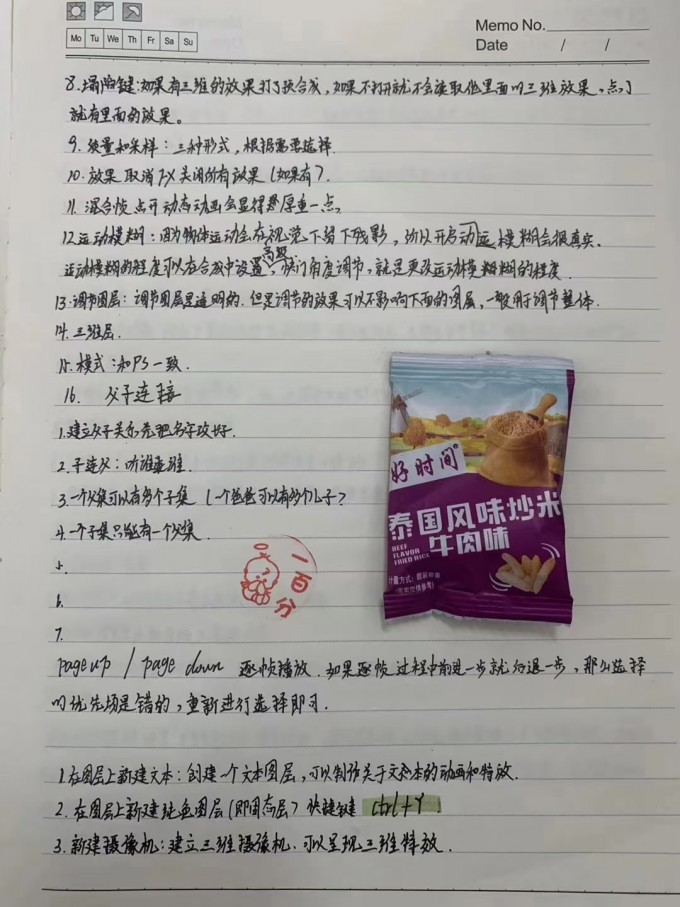 Memo No.
Mo Tu We Th Fr Sa Su
Date / /
8.塌陷键:如果有三维的效果打了预合成,如果不打开就不会读取他里面的三维放果,点了
就有里面的效果。
9.质量和采样:三种形式,根据需要选择.
10.放果 取消fx关闭所有效果(如果有).
11.混合帧 点开动态动画会显得厚重一点.
12.运动模糊:因为物体运动会在视觉下留下残影,所以开启动运模糊会很真实.
高级
运动模糊的程度可以在合成中设置,快门角度调节,就是更改运动模糊糊的程度.
13.调节图层:调节图层是透明的.但是调节的效果可以不影响下面的图层,一般用于调节整体.
14.三维层.
15.模式:和PS一致.
16. 父子连接
1.建立父子关系先把名字改好.
2.子连父:听谁连谁.
3.一个父集可以有多个子集(一个爸爸可以有多个儿子?
4.一个子集只能有一个父集.
5.
6.
7.
好时间®
泰国风味炒米
BEEF
FLAVOR
FRIED RICE
牛肉味
计量方式:
一百分
page up / page down 逐帧播放.如果逐帧过程中前进一步就后退一步,那么选择
的优先场是错的,重新进行选择即可.
1.在图层上新建文本:创建一个文本图层,可以制作关于文本的动画和特放.
2.在图层上新建纯色图层(即固态层)快捷键 ctrl+Y
3.新建摄像机:建立三维摄像机.可以呈现三维特放.